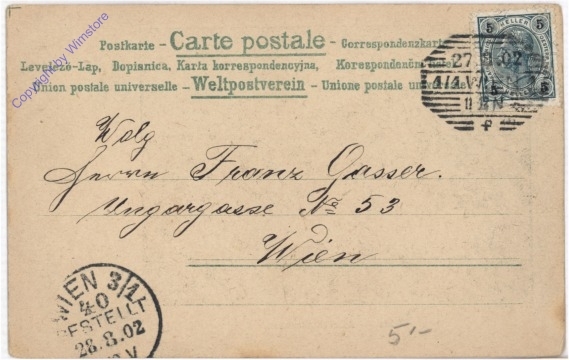 Copyright by Wimstore
Postkarte – Carte postale – Correspondenzkarte
Levelező-Lap, Dopisnica, Karta korrespondencyjna,
Union postale universelle – Weltpostverein – Unione postale
5 HELLER 5
27. 8. 02
1/1 WIEN
Wolg
Herrn Franz Gasser.
Ungargasse № 53
Wien
WIEN 3/1
40
BESTELLT
28.8.02
V
5'-